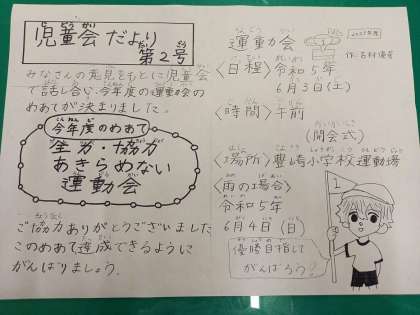 児童会だより
第2号
みなさんの意見をもとに児童会
で話し合い今年度の運動会の
めあてが決まりました。
今年度のめあて
全力・協力
あきらめない
運動会
ご協力ありがとうございました
このめあて達成できるように
がんばりましょう。
運動会
〈日程〉令和5年
6月3日(土)
〈時間〉午前
(開会式)
〈場所〉豊崎小学校運動場
〈雨の場合〉
令和5年
6月4日(日)
1
優勝目指して
がんばろう